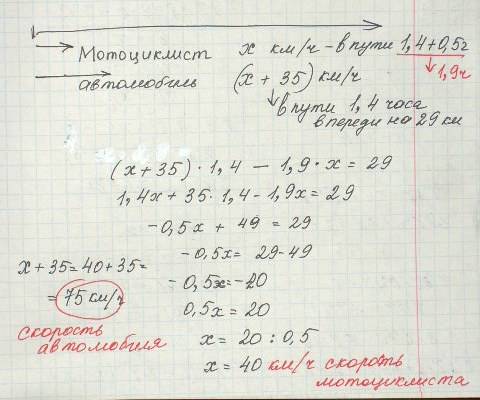 Мотоциклист х км/ч - в пути 1,4+0,5ч
1,9ч
автомобиль (х + 35) км/ч
в пути 1,4 часа
впереди на 29 км
(х+35) · 1,4 - 1,9 · х = 29
1,4х + 35 · 1,4 - 1,9х = 29
-0,5х + 49 = 29
-0,5х = 29-49
-0,5х = -20
0,5х = 20
х = 20 : 0,5
х = 40 км/ч скорость
мотоциклиста
х + 35 = 40 + 35 =
= 75 км/ч
скорость
автомобиля